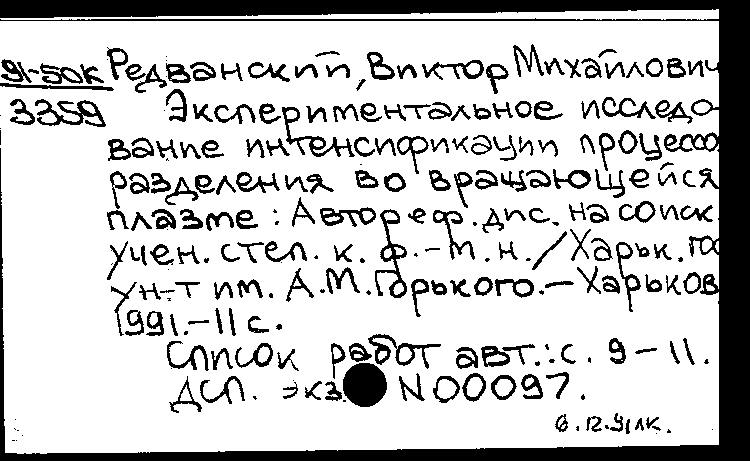 91-50К Редванский, Виктор Михайлович
3359 Экспериментальное исследо-
вание интенсификации процессо
разделения во вращающейся
плазме : Автореф. дис. на соиск.
учен. степ. к. ф.-м. н. / Харьк. го
ун-т им. А.М. Горького. — Харьков
1991. - 11 с.
Список работ авт.: с. 9-11.
ДСП. Экз. N 00097.
6.12.91 лк.